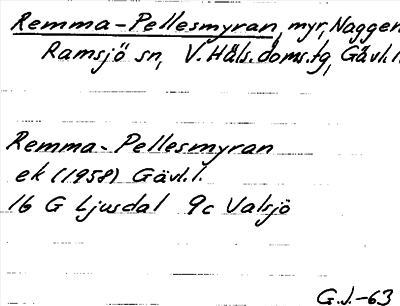 Remma-Pellesmyran, myr, Naggen
Ramsjö sn, V. Häls. doms.tg, Gävl.l.
Remma-Pellesmyran
ek (1958) Gävl.l.
16 G Ljusdal 9c Valsjö
G.J.-63